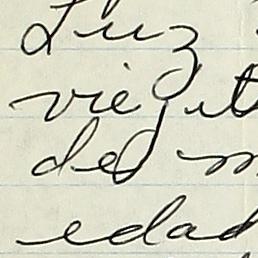 Luz
viejit
del m
edad